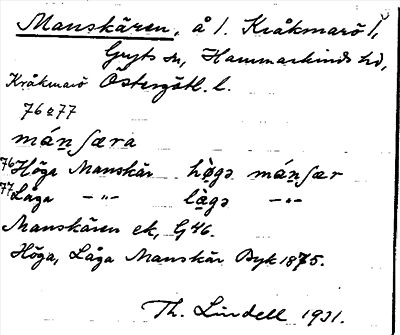 Manskären, å 1. Kråkmarö 1,
Gryts sn, Hammarkinds hd,
Kråkmarö Östergötl. l.
76 o 77
má̱nʃæra
76 Höga Manskär hø̱gə má̱nʃær
77 Låga —"— lå̱gə —"—
Manskären ek, G 46.
Höga, Låga Manskär Byk 1875.
Th. Lindell 1931.